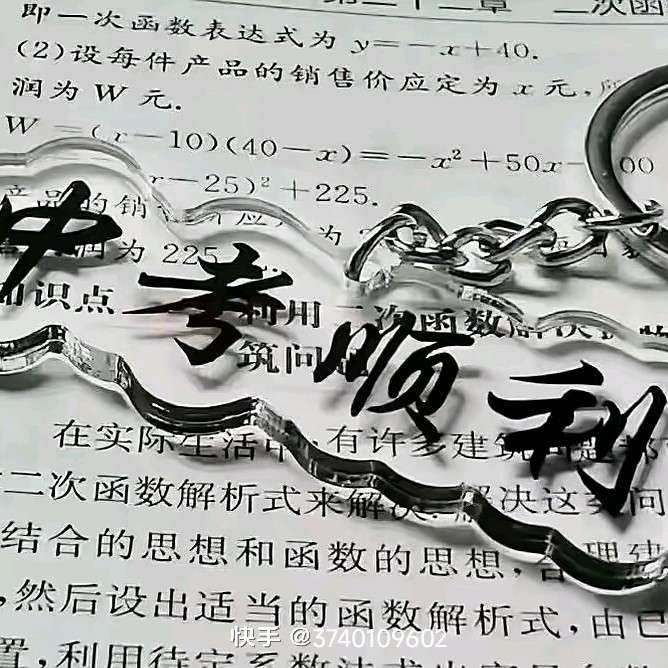 二次函
即一次函数表达式为 y=-x+40.
(2)设每件产品的销售价应定为 x 元,
润为 W 元.
W=(x-10)(40-x)=-x²+50x-
x-25)²+225.
产品的销
润为 225
中考顺利
知识点
利用二次函数解决
筑问
在实际生活中,有许多建筑问题都
二次函数解析式来解决.解决这类问
结合的思想和函数的思想,合理建
,然后设出适当的函数解析式,由已
置,利用待定系数法
快手 @3740109602